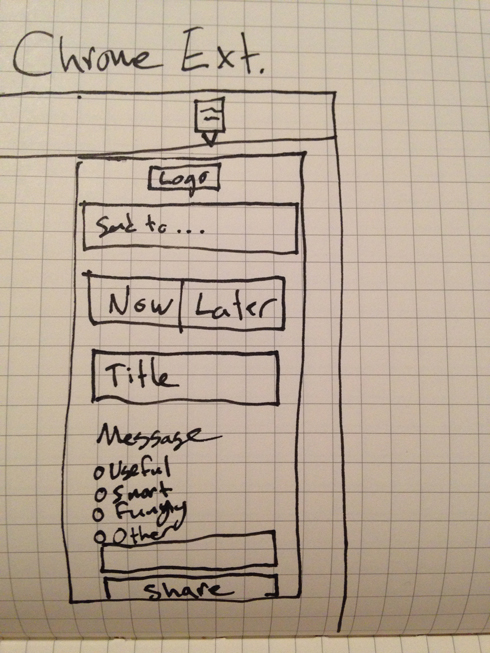 Chrome Ext.
Logo
Send to...
Now Later
Title
Message
Useful
Smart
Funny
Other
Share